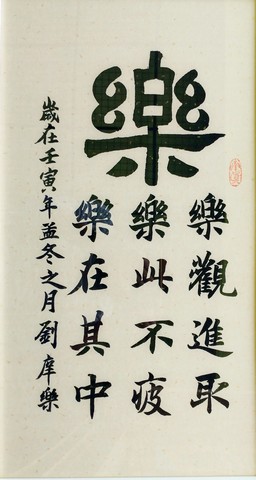 樂
樂觀進取
樂此不疲
樂在其中
歲在壬寅年孟冬之月劉樂